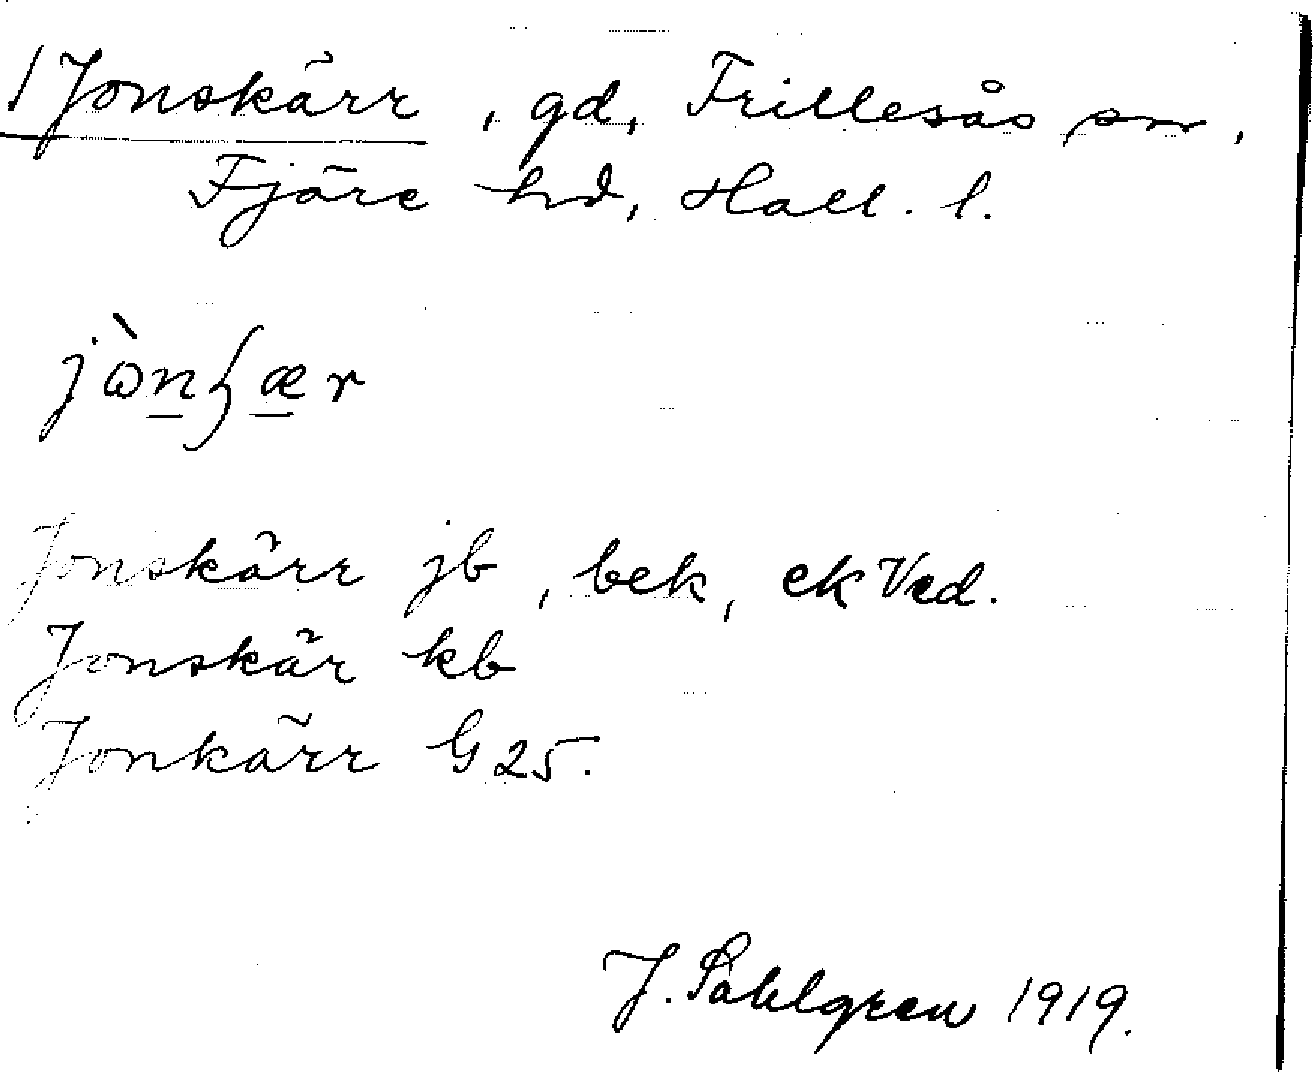 Jonskärr, gd, Frillesås sn,
Fjäre hd, Hall. l.
jὼnʃær
Jonskärr jb, bek, ek Ved.
Jonskär kb
Jonkärr G 25.
J. Sahlgren 1919.